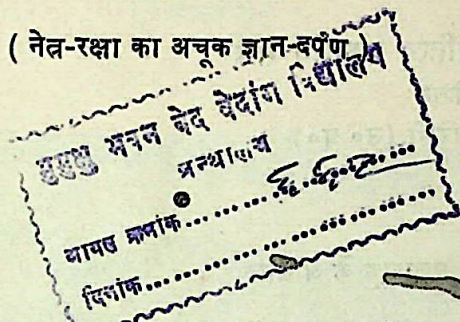 ( नेत्र-रक्षा का अचूक ज्ञान-दर्पण )
मुमुक्षु भवन वेद वेदांग विद्यालय
ग्रन्थालय
आगत क्रमांक
दिनांक